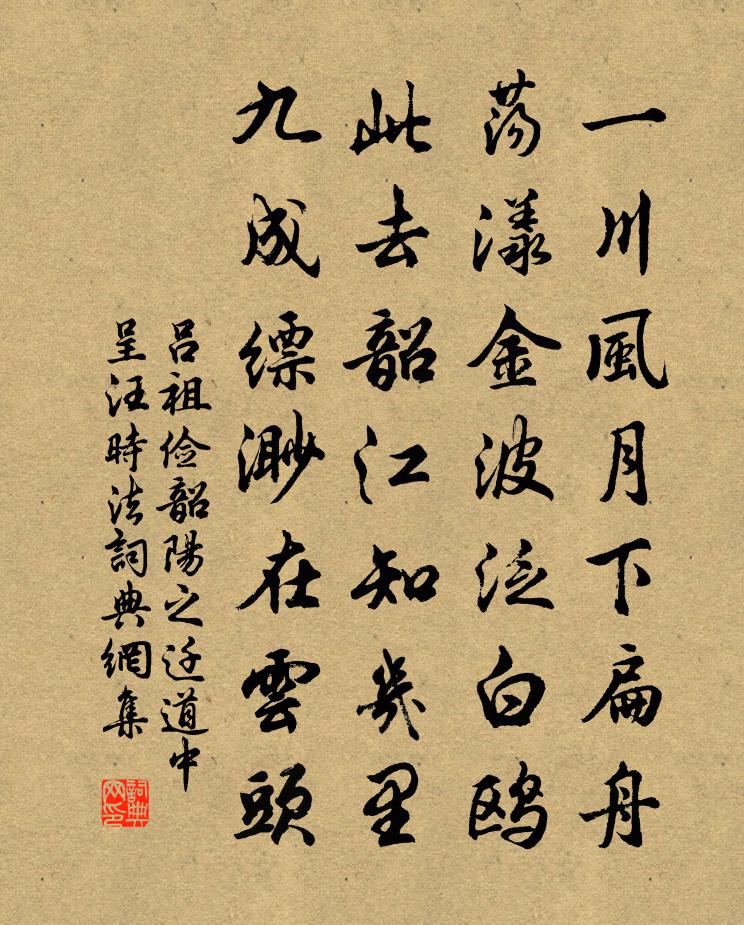 一川風月下扁舟
蕩漾金波泛白鸥
此去韶江知幾里
九成缥渺在雲頭
吕祖俭韶陽之迁道中
呈汪時法詞典網集
詞典网印